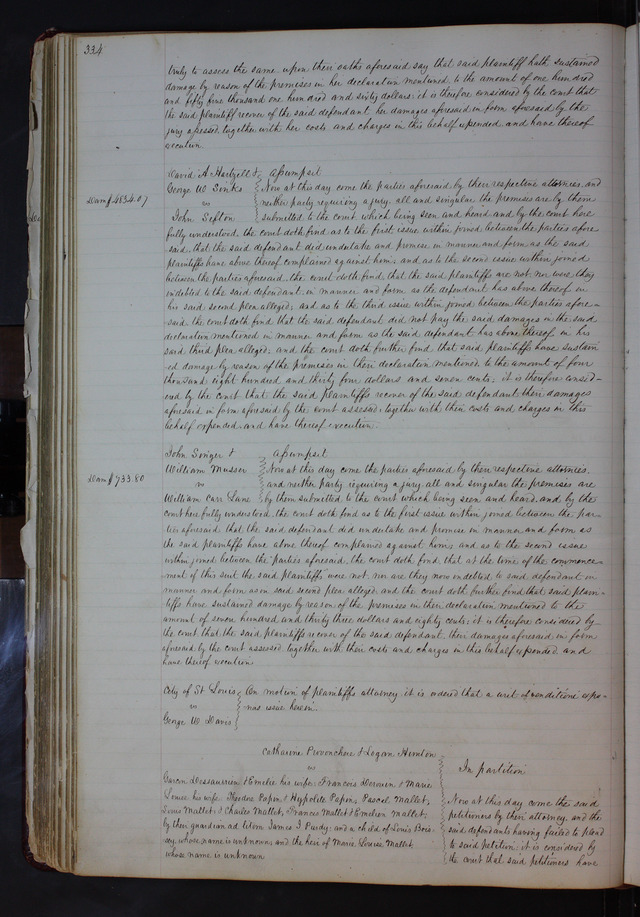 334
truly to assess the same upon their oaths aforesaid say that said plaintiff hath sustained
damage by reason of the premises in her declaration mentioned to the amount of one hundred
and fifty five thousand one hundred and sixty dollars: it is therefore considered by the court that
the said plaintiff recover of the said defendant her damages aforesaid in form aforesaid by the
jury assessed together with her costs and charges in this behalf expended and have thereof
execution
David A Hartzell & Assumpsit
George W Sinks Now at this day come the parties aforesaid by their respective attornies, and
Dam$ 4834.07
vs neither party requiring a jury, all and singular the premises are by them
John Sefton submitted to the court which being seen and heard and by the court here
fully understood, the court doth find as to the first issue within joined between the parties afore
said, that the said defendant did undertake and promise in manner and form as the said
plaintiffs have above thereof complained against him; and as to the second issue within joined
between the parties aforesaid, the court doth find that the said plaintiffs are not nor were they
indebted to the said defendant in manner and form as the defendant has above thereof in
his said second plea alleged; and as to the third issue within joined between the parties afore-
said, the court doth find that the said defendant did not pay the said damages in the said
declaration mentioned in manner and form as the said defendant has above thereof in his
said third plea alleged; and the court doth further find that said plaintiffs have sustain
ed damage by reason of the premises in their declaration mentioned to the amount of four
thousand eight hundred and thirty four dollars and seven cents; it is therefore consid-
ered by the court that the said plaintiffs recover of the said defendant their damages
aforesaid in form aforesaid by the court assessed together with their costs and charges in this
behalf expended and have thereof execution.
John Siniger & Assumpsit
William Musser Now at this day come the parties aforesaid by their respective attornies,
Dam$ 733.80
vs and neither party requiring a jury all and singular the premises are
William Carr Lane by them submitted to the court which being seen and heard, and by the
court here fully understood, the court doth find as to the first issue within joined between the par-
ties aforesaid that the said defendant did undertake and promise in manner and form as
the said plaintiffs have above thereof complained against him; and as to the second issue
within joined between the parties aforesaid, the court doth find, that at the time of the commence-
ment of this suit the said plaintiffs were not, nor are they now indebted to said defendant in
manner and form as in said second plea alleged and the court doth further find that said plain-
tiffs have sustained damage by reason of the premises in their declaration mentioned to the
amount of seven hundred and thirty three dollars and eighty cents; it is therefore considered by
the court that the said plaintiffs recover of the said defendant their damages aforesaid in form
aforesaid by the court assessed, together with their costs and charges in this behalf expended and
have thereof execution
City of St Louis On motion of plaintiffs attorney it is ordered that a writ of venditioni expo-
vs nas issue herein.
George W Davis
Catharine Provenchere & Logan Hunton
vs In partition
Garcon Dessaurrien & Emelie his wife, Francois Derouin & Marie
Louise his wife, Theodore Papin, & Hyppolite Papin, Pascal Mallet, Now at this day come the said
Louis Mallet, & Charles Mallet, Frances Mallet & Emelien Mallet, petitioners by their attorney, and the
by their guardian ad litem James S Purdy; and a child of Louis Bois- said defendants having failed to plead
dey, whose name is unknown, and the heir of Marie Louise Mallet to said petition: it is considered by
whose name is unknown the court that said petitioners have